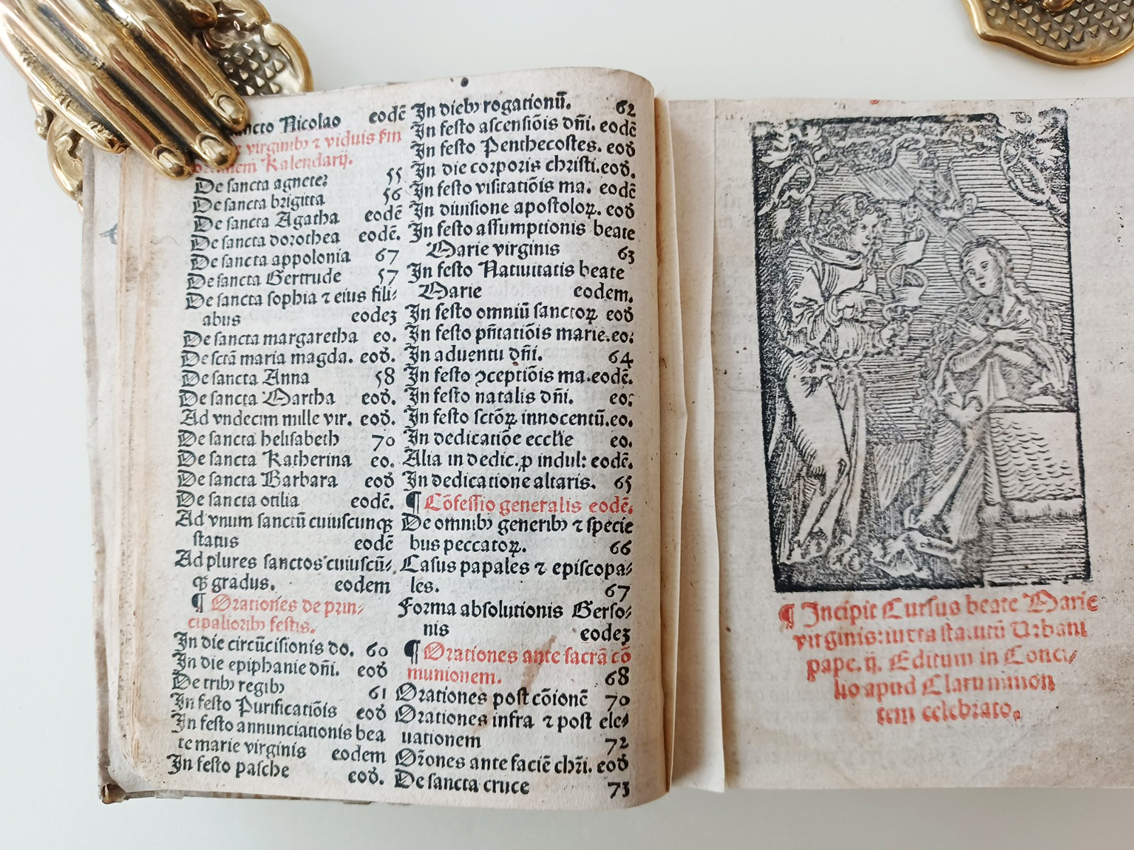 ncto Nicolao eodē
virginibꝫ ⁊ viduis ẜm
em Kalendarij.
De sancta agnete: 55
De sancta brigitta 56
De sancta Agatha eodē
De sancta dorothea eodē.
De sancta appolonia 67
De sancta Gertrude 57
De sancta sophia ⁊ eius fili⸗
abus eodeꝫ
De sancta margaretha eo.
De sctā maria magda. eoδ.
De sancta Anna 58
De sancta Martha eoδ.
Ad vndecim mille vir. eoδ.
De sancta helisabeth 70
De sancta Katherina eo.
De sancta Barbara eoδ
De sancta otilia eodē.
Ad vnum sanctū cuiuscunqꝫ
status eodē
Ad plures sanctos cuiuscū⸗
qꝫ gradus. eodem
¶ Orationes de prin⸗
cipalioribꝫ festis.
In die circūcisionis do. 60
In die epiphanie dñi. eoδ
De tribꝫ regibꝫ 61
In festo Purificatiōis eoδ
In festo annunciationis bea
te marie virginis eodem
In festo pasche eoδ.
In diebꝫ rogationū. 62
In festo ascensiōis dñi. eodē
In festo Penthecostes. eoδ.
In die corporis christi. eoδ.
In festo visitatiōis ma. eodē
In diuisione apostoloꝝ. eoδ
In festo assumptionis beate
Marie virginis 63
In festo Natiuitatis beate
Marie eodem.
In festo omniū sanctoꝝ eoδ
In festo pñtatiōis marie. eo:
In aduentu dñi. 64
In festo ↄceptiōis ma. eodē.
In festo natalis dñi. eo:
In festo sctōꝝ innocentū. eo.
In dedicatiōe ecclie eo.
Alia in dedic. ꝑ indul: eodē.
In dedicatione altaris. 65
¶ Cōfessio generalis eodē.
De omnibꝫ generibꝫ ⁊ specie
bus peccatoꝝ. 66
Casus papales ⁊ episcopa⸗
les. 67
Forma absolutionis Gerso⸗
nis eodeꝫ
¶ Orationes ante sacrā cō
munionem. 68
Orationes post cōionē 70
Orationes infra ⁊ post ele⸗
uationem 72
Orōnes ante faciē chr̄i. eoδ
De sancta cruce 73
¶ Incipit Cursus beate Marie
virginis: iuxta statutū Urbani
pape. ij. Editum in Conci⸗
lio apud Clarummon
tem celebrato.